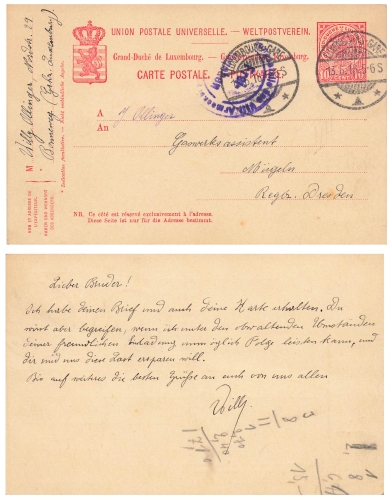 UNION POSTALE UNIVERSELLE. – WELTPOSTVEREIN.
Grand-Duché de Luxembourg.
CARTE POSTALE.
A J. Ollinger
An
Gaswerksassistent
Mügeln
Regbz. Dresden
NB. Ce côté est réservé exclusivement à l'adresse.
Diese Seite ist nur für die Adresse bestimmt.
M Willy Ollinger, 29
Bonneweg (Luxemburg)
Lieber Bruder!
Ich habe deinen Brief und auch deine Karte erhalten. Du
wirst aber begreifen, wenn ich unter den obwaltenden Umständen
deiner freundlichen Einladung unmöglich Folge leisten kann, und
dir und uns diese Last ersparen will.
Bis auf weiteres die besten Grüße an euch von uns allen
Willy